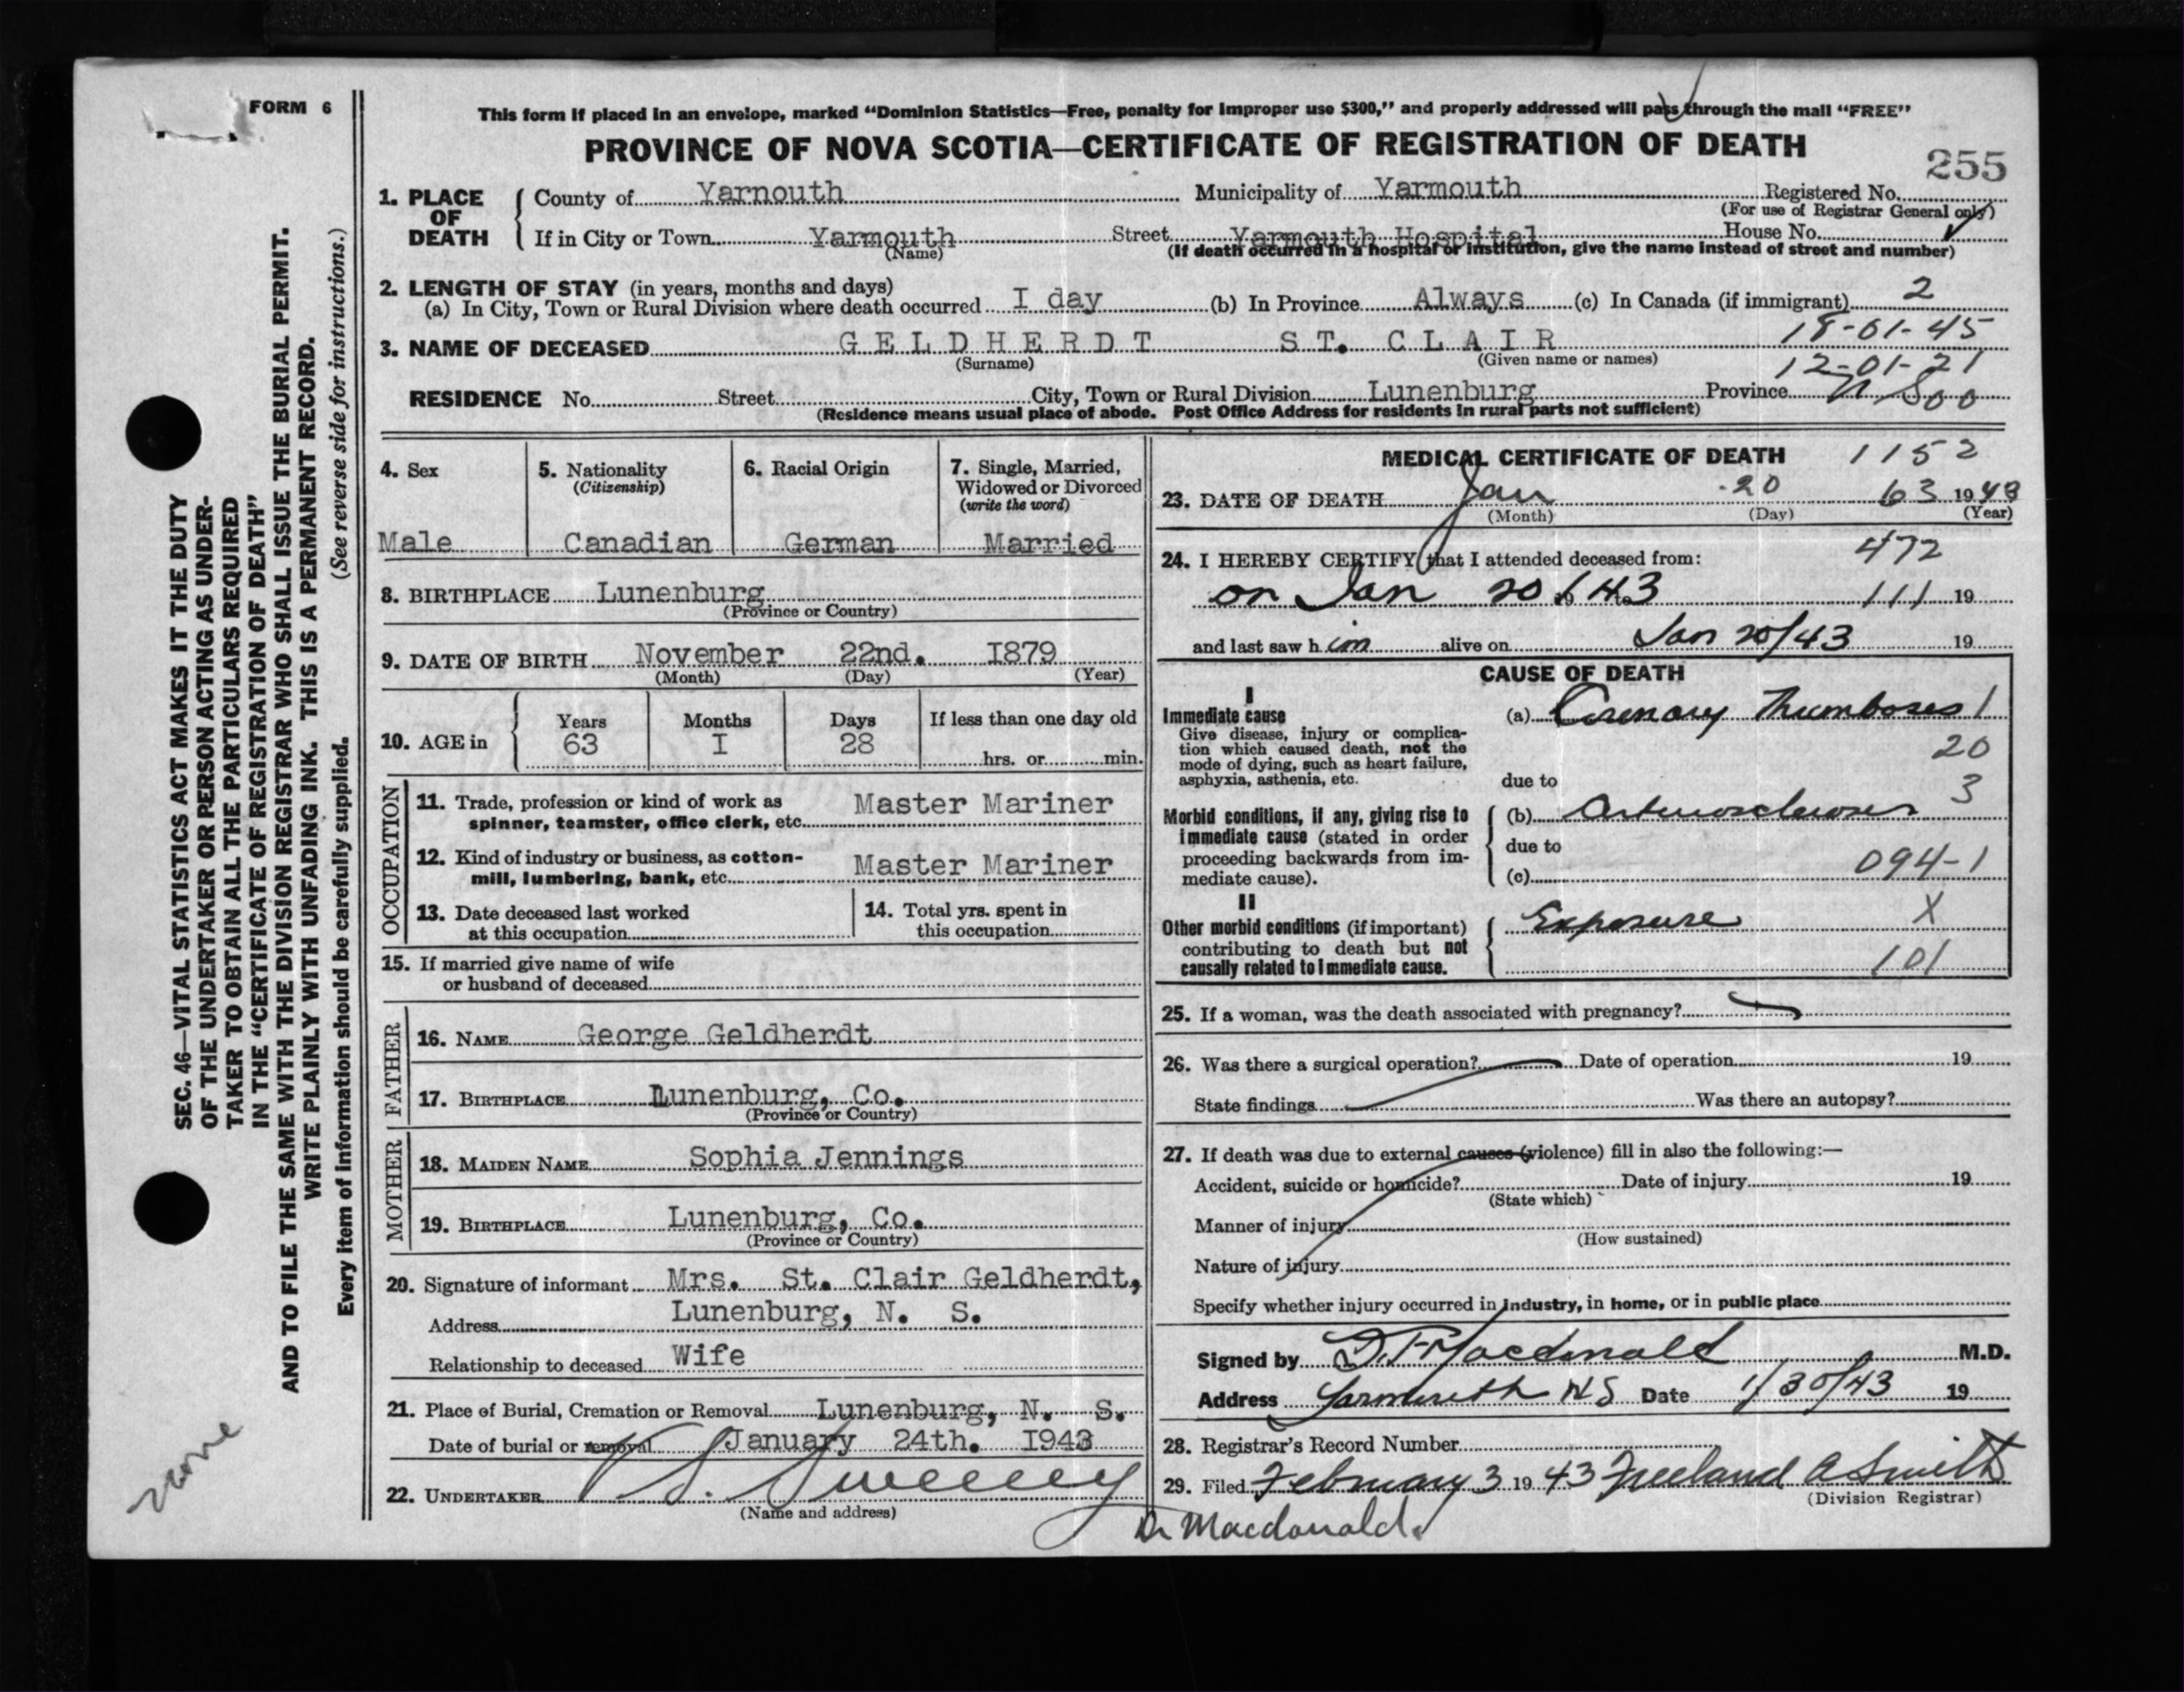 FORM 6
This form if placed in an envelope, marked "Dominion Statistics—Free, penalty for improper use $300," and properly addressed will pass through the mail "FREE"
PROVINCE OF NOVA SCOTIA—CERTIFICATE OF REGISTRATION OF DEATH
255
1. PLACE OF DEATH
County of Yarnouth Municipality of Yarmouth Registered No.
(For use of Registrar General only)
If in City or Town Yarmouth Street Yarmouth Hospital House No.
(Name) (If death occurred in a hospital or institution, give the name instead of street and number)
2. LENGTH OF STAY (in years, months and days)
(a) In City, Town or Rural Division where death occurred I day (b) In Province Always (c) In Canada (if immigrant) 2
18-01-45
3. NAME OF DECEASED GELDHERDT ST. CLAIR
(Surname) (Given name or names)
12-01-21
RESIDENCE No. Street City, Town or Rural Division Lunenburg Province N.S. 00
(Residence means usual place of abode. Post Office Address for residents in rural parts not sufficient)
4. Sex
Male
5. Nationality
(Citizenship)
Canadian
6. Racial Origin
German
7. Single, Married,
Widowed or Divorced
(write the word)
Married
8. BIRTHPLACE Lunenburg
(Province or Country)
9. DATE OF BIRTH November 22nd. I879
(Month) (Day) (Year)
10. AGE in
Years Months Days If less than one day old
63 I 28
hrs. or min.
OCCUPATION
11. Trade, profession or kind of work as
spinner, teamster, office clerk, etc. Master Mariner
12. Kind of industry or business, as cotton-
mill, lumbering, bank, etc. Master Mariner
13. Date deceased last worked
at this occupation
14. Total yrs. spent in
this occupation
15. If married give name of wife
or husband of deceased
FATHER
16. NAME George Geldherdt
17. BIRTHPLACE Lunenburg, Co.
(Province or Country)
MOTHER
18. MAIDEN NAME Sophia Jennings
19. BIRTHPLACE Lunenburg, Co.
(Province or Country)
20. Signature of informant Mrs. St. Clair Geldherdt,
Address Lunenburg, N. S.
Relationship to deceased Wife
21. Place of Burial, Cremation or Removal Lunenburg, N. S.
Date of burial or removal January 24th. I943
22. UNDERTAKER V S. Sweeney
(Name and address)
MEDICAL CERTIFICATE OF DEATH 1152
23. DATE OF DEATH Jan 20 63 1943
(Month) (Day) (Year)
24. I HEREBY CERTIFY that I attended deceased from: 472
on Jan 20/43 111 19
and last saw him alive on Jan 20/43 19
CAUSE OF DEATH
I
Immediate cause
Give disease, injury or complica-
tion which caused death, not the
mode of dying, such as heart failure,
asphyxia, asthenia, etc.
(a) Coronary Thrumboses 1
20
due to 3
Morbid conditions, if any, giving rise to
immediate cause (stated in order
proceeding backwards from im-
mediate cause).
(b) Arteriosclerosis
due to
(c) 094-1
II
Other morbid conditions (if important)
contributing to death but not
causally related to immediate cause.
Exposure X
101
25. If a woman, was the death associated with pregnancy?
26. Was there a surgical operation? Date of operation 19
State findings Was there an autopsy?
27. If death was due to external causes (violence) fill in also the following:—
Accident, suicide or homicide? Date of injury 19
(State which)
Manner of injury
(How sustained)
Nature of injury
Specify whether injury occurred in industry, in home, or in public place
Signed by D. F. Macdonald M.D.
Address Yarmouth NS Date 1/30/43 19
28. Registrar's Record Number
29. Filed February 3 1943 Freeland A Smith
(Division Registrar)
Dr Macdonald.
SEC. 46—VITAL STATISTICS ACT MAKES IT THE DUTY
OF THE UNDERTAKER OR PERSON ACTING AS UNDER-
TAKER TO OBTAIN ALL THE PARTICULARS REQUIRED
IN THE "CERTIFICATE OF REGISTRATION OF DEATH"
AND TO FILE THE SAME WITH THE DIVISION REGISTRAR WHO SHALL ISSUE THE BURIAL PERMIT.
WRITE PLAINLY WITH UNFADING INK. THIS IS A PERMANENT RECORD.
Every item of information should be carefully supplied. (See reverse side for instructions.)
none